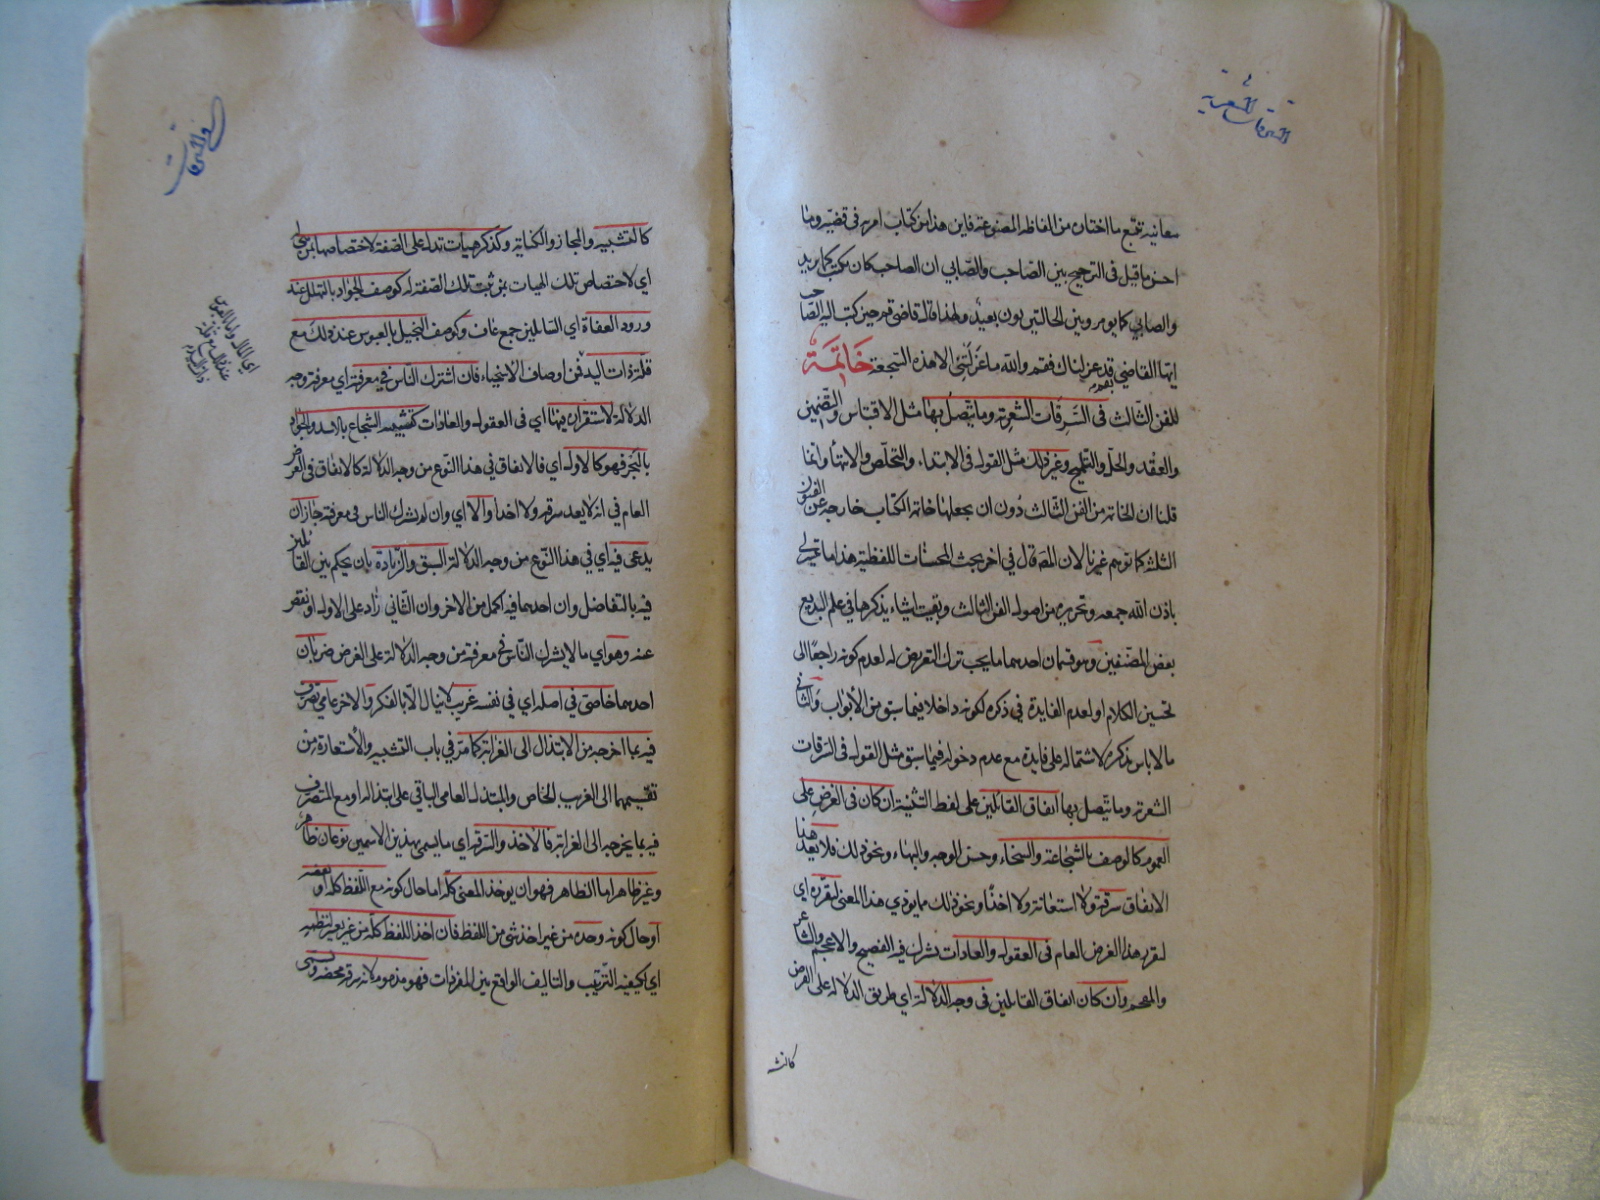 السرقات الشعرية
معانيه تتبع ما اختاره من الفاظه المصنوعة فاين هذا من كتاب امر به في قضيه وما
احسن ما قيل في الترجيح بين الصاحب والصابي ان الصاحب كان يكتب كما يريد
والصابي كما يومر وبين الحالتين بون بعيد ولهذا قال قاضي قم حين كتب اليه الصاحب
ايها القاضي بقم قد عزلناك فقم والله ما عزلتني الا هذه السجعة خاتمة
للفن الثالث في السرقات الشعرية وما يتصل بها مثل الاقتباس والتضمين
والعقد والحل والتلميح وغير ذلك مثل القول في الابتداء والتخلص والانتهاء وانما
قلنا ان الخاتمة من الفن الثالث دون ان يجعلها خاتمة الكتاب خارجه عن الفنون
الثلثة كما توهم غيرنا لان المصـ قال في اخر بحث المحسنات اللفظية هذا ما تيسر لي
باذن الله جمعه وتحريره من اصول الفن الثالث وبقيت اشياء يذكرها في علم البديع
بعض المصنفين وهو قسمان احدهما ما يجب ترك التعريض له لعدم كونه راجعا الى
تحسين الكلام او لعدم الفايدة في ذكره لكونه داخلا فيما سبق من الابواب والثاني
ما لا باس بذكره لاشتماله على فايدة مع عدم دخوله فيما سبق مثل القول في السرقات
الشعرية وما يتصل بها اتفاق القائلين على لفظ التثنية ان كان في الغرض على
العموم كالوصف بالشجاعة والسخاء وحسن الوجه والبهاء ونحو ذلك فلا يعد هذا
الاتفاق سرقة ولا استعانة ولا اخذا ونحو ذلك مما يودي هذا المعنى لتقرره اي
لتقرر هذا الغرض العام في العقول والعادات يشترك فيه الفصيح والاعجم والشاعر
والمفحم وان كان اتفاق القايلين في وجه الدلالة اي طريق الدلالة على الغرض
كالتشـ
في السرقات
كالتشبيه والمجاز والكناية وكذكر هيآت تدل على الصفة لاختصاصها بمن هي له
اي لاختصاص تلك الهيات بمن ثبت تلك الصفة له كوصف الجواد بالتهلل عند
ورود العفاة اي السايلين جمع عاف وكوصف البخيل بالعبوس عند ذلك مع
قلة ذات اليد من اوصاف الاسخياء فان اشترك الناس في معرفته اي معرفة وجه
الدلالة لاستقراره فيهما اي في العقول والعادات كتشبيه الشجاع بالاسد والجواد
بالبحر فهو كالاول اي فالاتفاق في هذا النوع من وجه الدلالة كالاتفاق في الغرض
العام في انه لا يعد سرقة ولا اخذا والا اي وان لم يشترك الناس في معرفته جاز ان
يدعى فيه اي في هذا النوع من وجه الدلالة السبق والزيادة بان يحكم بين القائلين
فيه بالتفاضل وان احدهما فيه اكمل من الاخر وان الثاني زاد على الاول او نقص
عنه وهو اي ما لا يشترك الناس في معرفته من وجه الدلالة على الغرض ضربان
احدهما خاصي في اصله اي في نفسه غريب لا ينال الا بالفكر والاخر عامي تصرف
فيه بما اخرجه من الابتذال الى الغرابة كما مر في باب التشبيه والاستعارة من
تقسيمهما الى الغريب الخاص والمبتذل العامي الباقي على ابتذاله او مع المتصرف
فيه بما يخرجه الى الغرابة فالاخذ والسرقة اي ما يسمى بهذين الاسمين نوعان ظاهر
وغير ظاهر اما الظاهر فهو ان يوخذ المعنى كله اما حال كونه مع اللفظ كله او بعضه
او حال كونه وحده من غير اخذ شي من اللفظ فان اخذ اللفظ كله من غير تغيير لنظمه
اي لكيفية الترتيب والتاليف الواقع بين المفردات فهو مذموم لانه سرقة محضة ويسمى